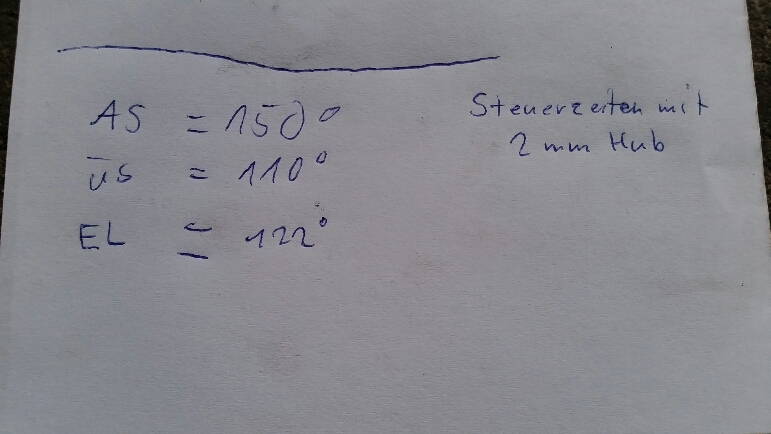 AS = 150°
Steuerzeiten mit
2 mm Hub
üs = 110°
EL = 122°